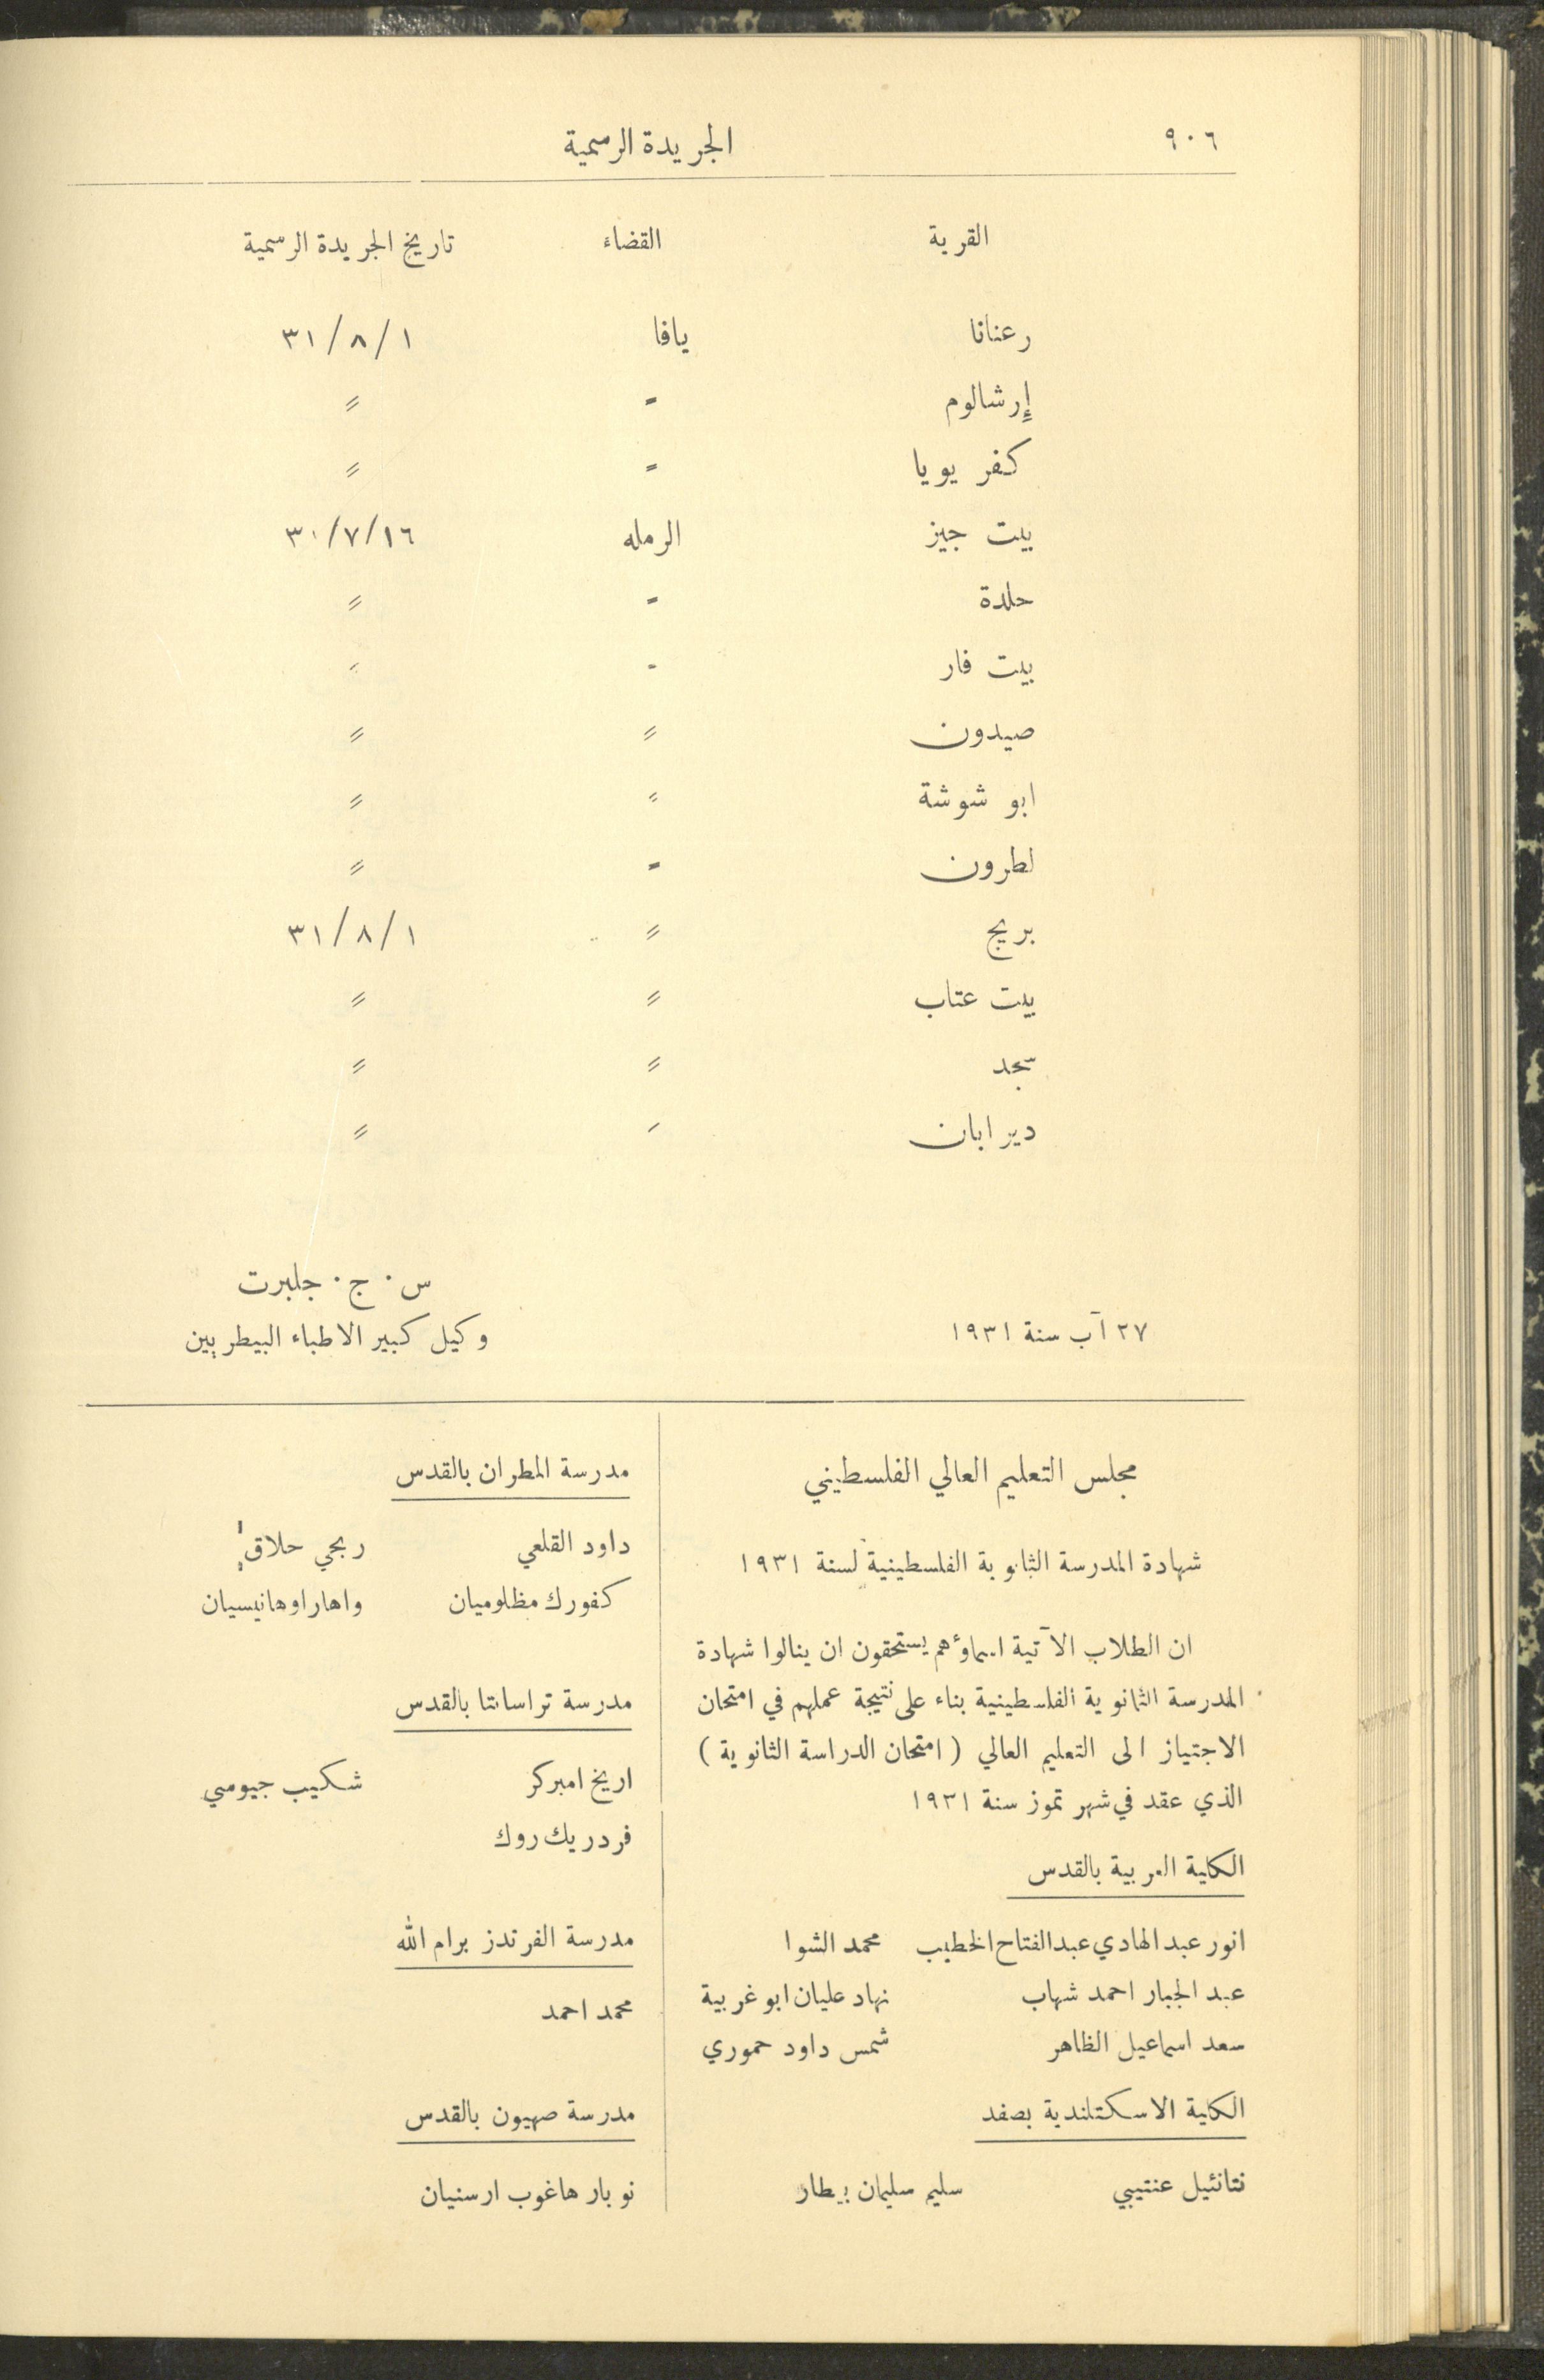 ٩٠٦ الجريدة الرسمية
القرية القضاء تاريخ الجريدة الرسمية
رعنانا يافا ٣١/٨/١
إرشالوم = 〃
كفر يويا = 〃
بيت جيز الرمله ٣٠/٧/١٦
حلدة = 〃
بيت فار = 〃
صيدون 〃 〃
ابو شوشة 〃 〃
لطرون = 〃
بريج 〃 ٣١/٨/١
بيت عتاب 〃 〃
سجد 〃 〃
دير ابان 〃 〃
س. ج. جلبرت
٢٧ آب سنة ١٩٣١ وكيل كبير الاطباء البيطريين
مجلس التعليم العالي الفلسطيني
شهادة المدرسة الثانوية الفلسطينية لسنة ١٩٣١
ان الطلاب الآتية اسماؤهم يستحقون ان ينالوا شهادة
المدرسة الثانوية الفلسطينية بناء على نتيجة عملهم في امتحان
الاجتياز الى التعليم العالي (امتحان الدراسة الثانوية)
الذي عقد في شهر تموز سنة ١٩٣١
الكلية العربية بالقدس
انور عبد الهادي عبد الفتاح الخطيب محمد الشوا
عبد الجبار احمد شهاب نهاد عليان ابو غربية
سعد اسماعيل الظاهر شمس داود حموري
الكلية الاسكتلندية بصفد
نتانئيل عنتيبي سليم سليمان بيطار
مدرسة المطران بالقدس
داود القلعي ربحي حلاق
كفورك مظلوميان واهاراوهانيسيان
مدرسة تراسانتا بالقدس
اريخ امبركر شكيب جيومي
فردريك روك
مدرسة الفرندز برام الله
محمد احمد
مدرسة صهيون بالقدس
نوبار هاغوب ارسنيان